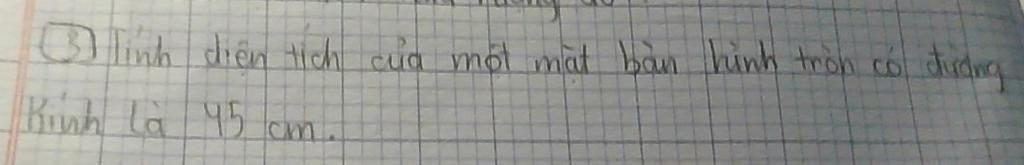 ③ Tính diện tích của một mặt bàn hình tròn có đường
kính là 45 cm.